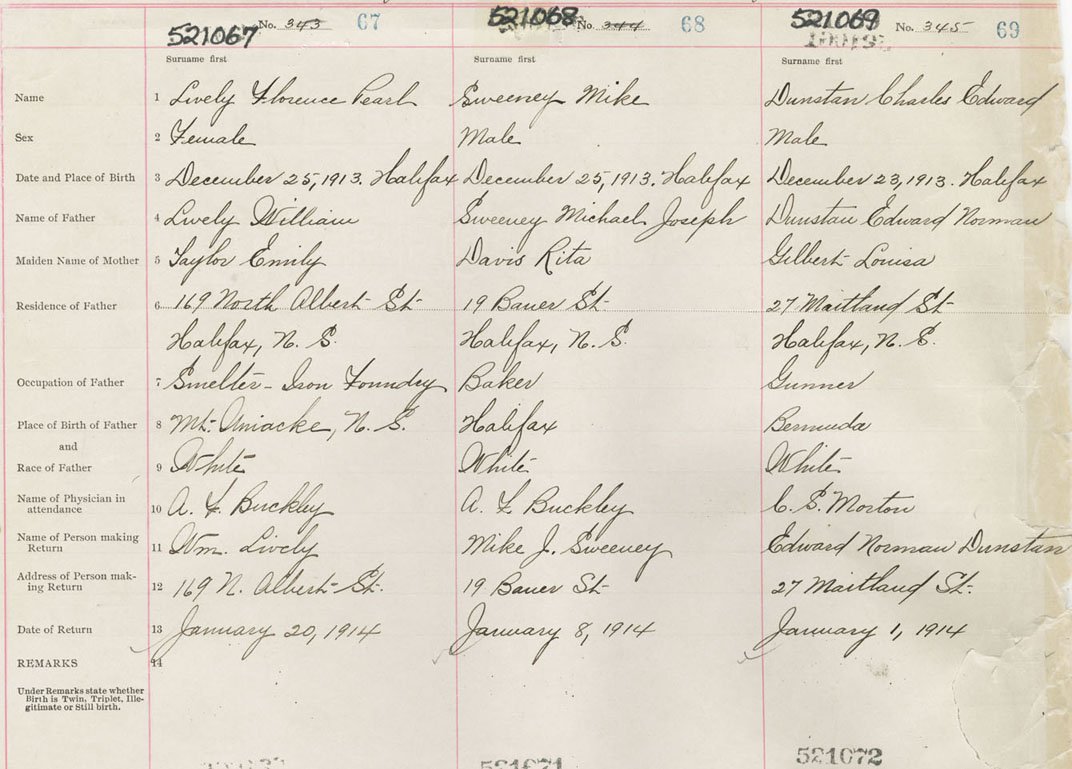 521067 No. 343 67 521068 No. 344 68 521069 No. 345 69
Surname first Surname first Surname first
Name 1 Lively Florence Pearl Sweeney Mike Dunstan Charles Edward
Sex 2 Female Male Male
Date and Place of Birth 3 December 25, 1913. Halifax December 25, 1913. Halifax December 23, 1913. Halifax
Name of Father 4 Lively William Sweeney Michael Joseph Dunstan Edward Norman
Maiden Name of Mother 5 Taylor Emily Davis Rita Gilbert Louisa
Residence of Father 6 169 North Albert St 19 Bauer St 27 Maitland St
Halifax, N. S. Halifax, N. S. Halifax, N. S.
Occupation of Father 7 Smelter - Iron Foundry Baker Gunner
Place of Birth of Father 8 Mt. Uniacke, N. S. Halifax Bermuda
and
Race of Father 9 White White White
Name of Physician in
attendance 10 A. F. Buckley A. F. Buckley C. S. Morton
Name of Person making
Return 11 Wm. Lively Mike J. Sweeney Edward Norman Dunstan
Address of Person mak-
ing Return 12 169 N. Albert St. 19 Bauer St 27 Maitland St.
Date of Return 13 January 20, 1914 January 8, 1914 January 1, 1914
REMARKS 14
Under Remarks state whether
Birth is Twin, Triplet, Ille-
gitimate or Still birth.
521071 521072